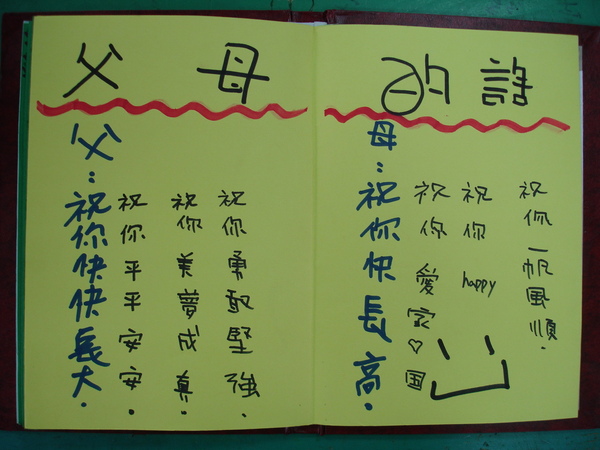 父母的話
父:
祝你快快長大.
祝你平平安安.
祝你美夢成真.
祝你勇敢堅強.
母:
祝你快長高.
祝你愛家♡国
祝你happy
祝你一帆風順.